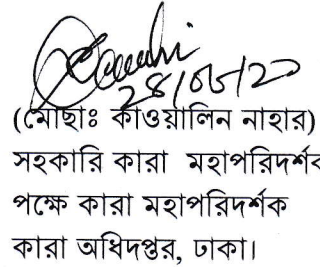 28/05/20
(মোছাঃ কাওয়ালিন নাহার)
সহকারি কারা মহাপরিদর্শক
পক্ষে কারা মহাপরিদর্শক
কারা অধিদপ্তর, ঢাকা।